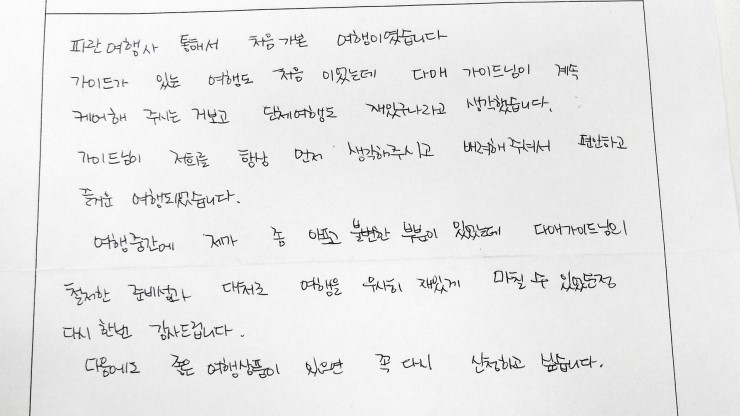 파란여행사 통해서 처음가본 여행이였습니다
가이드가 있는 여행도 처음 이였는데 다애 가이드님이 계속
케어해 주시는 거보고 단체여행도 재있구나라고 생각했습니다.
가이드님이 저희를 항상 먼저 생각해주시고 배려해주셔서 편안하고
즐거운 여행되었습니다.
여행중간에 제가 좀 아프고 불편한 부분이 있었는데 다애가이드님의
철저한 준비성과 대처로 여행을 무사히 재있게 마칠 수 있었든점
다시 한번 감사드립니다.
다음에도 좋은 여행상품이 있으면 꼭 다시 신청하고 싶습니다.